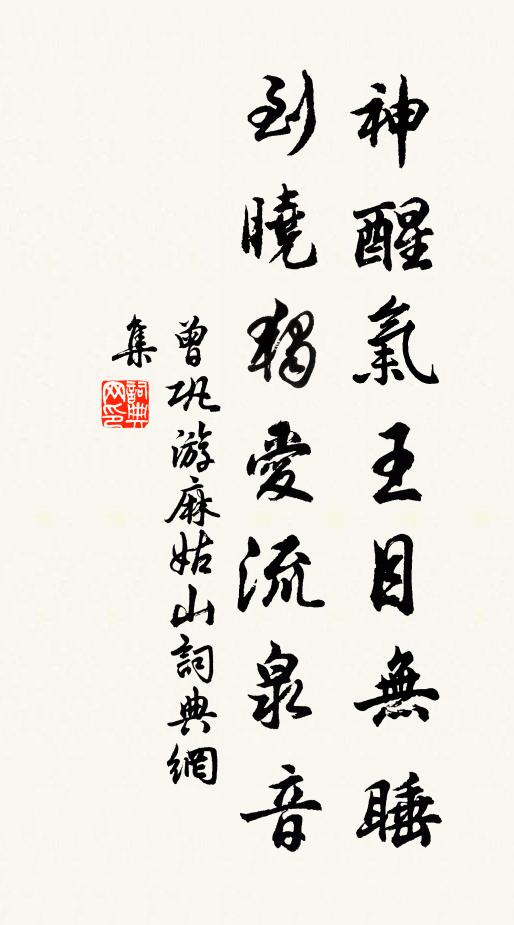 神醒氣王目無睡
到曉獨愛流泉音
曾鞏游麻姑山詞典網
集
詞典网印